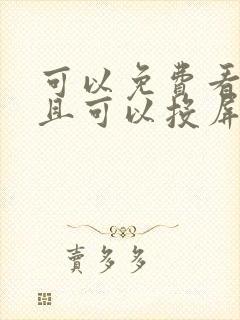 可以免費看
且可以投屏
賣多多